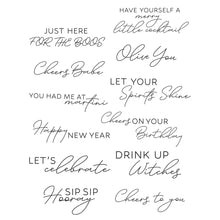 HAVE YOURSELF A
merry
little cocktail
JUST HERE
FOR THE BOOS
Olive You
Cheers Babe
LET YOUR
Spirits Shine
YOU HAD ME AT
martini
Cheers ON YOUR
Birthday
Happy
NEW YEAR
LET'S
celebrate
DRINK UP
Witches
SIP SIP
Hooray
Cheers to you